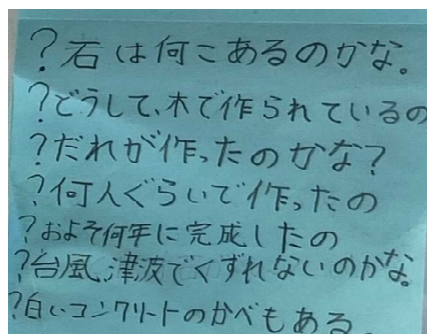 ?石は何こあるのかな。
?どうして、木で作られているの
?だれが作ったのかな?
?何人ぐらいで作ったの
?およそ何年に完成したの
?台風、津波でくずれないのかな。
?白いコンクリートのかべもある